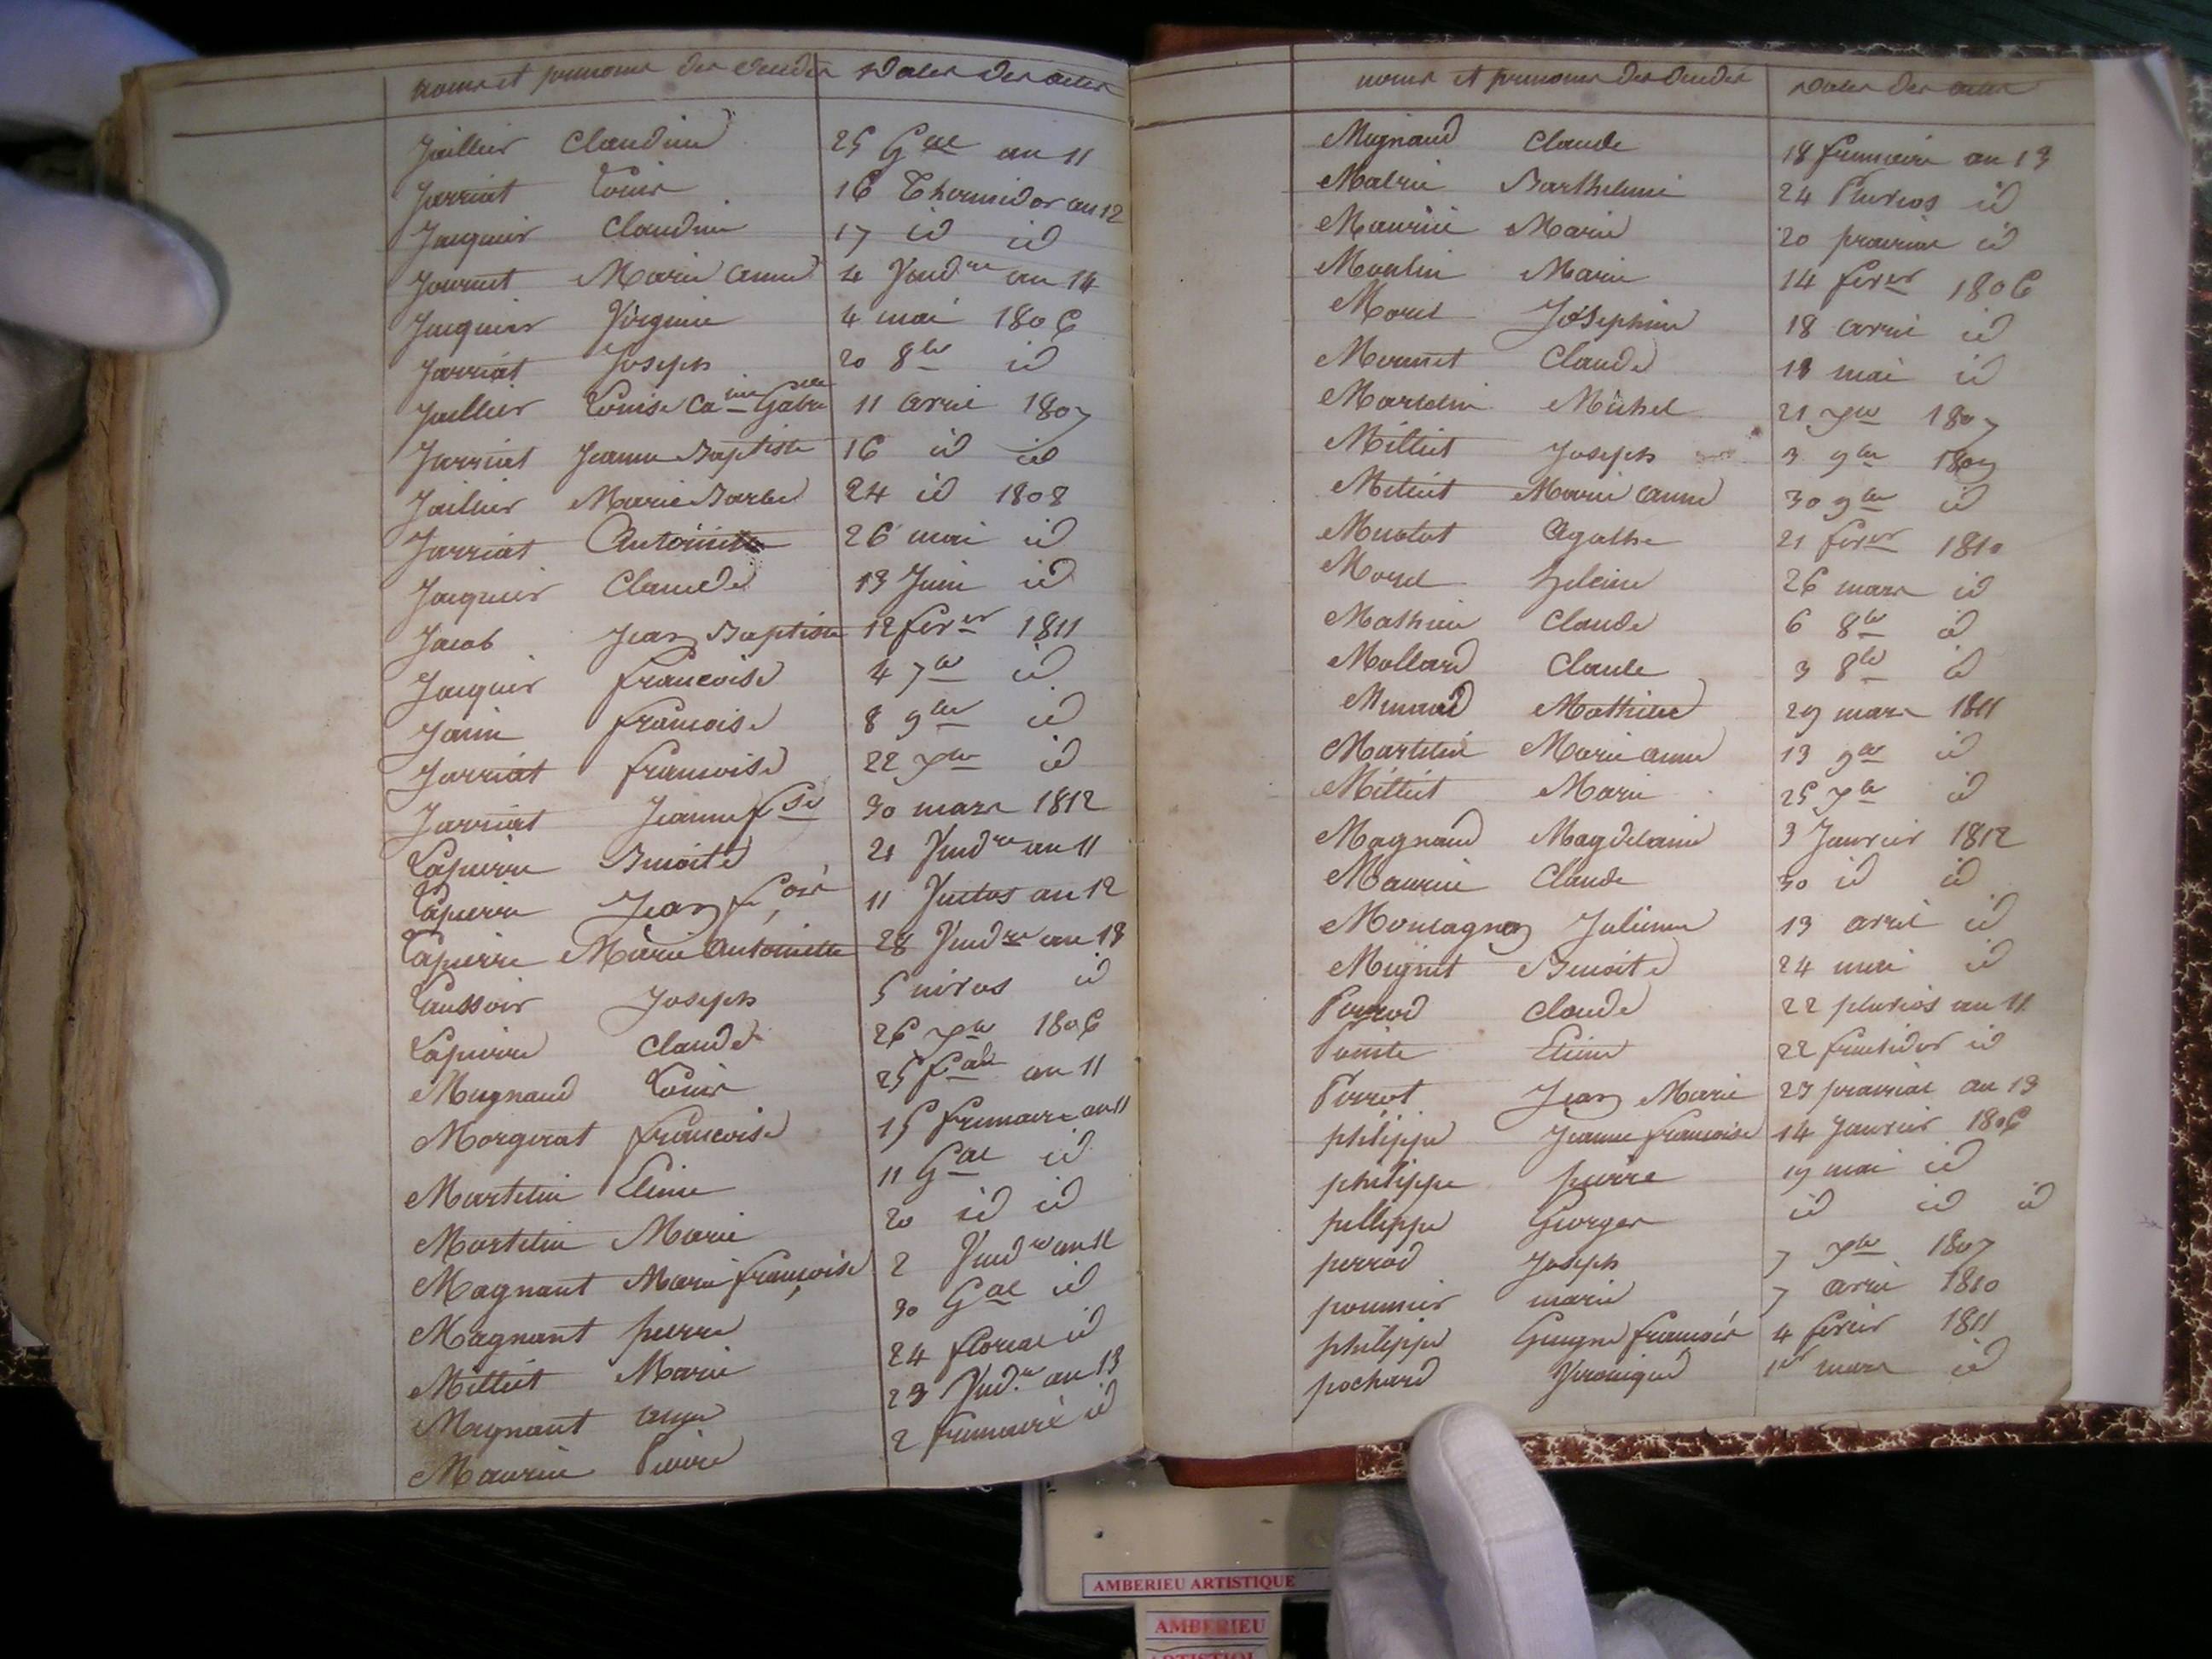 noms et prenoms des décédés dates des actes
Jaillier Claudine 25 Gal an 11
Jarriat Louis 16 Thermidor an 12
Jacquier Claudine 17 id id
Journet Marie anne 4 Vendre an 14
Jacquier Virginie 4 mai 1806
Jarriat Joseph 20 8bre id
Jaillier Louise Cane Gabelle 11 avril 1807
Jarriat Jeanne Baptiste 16 id id
Jaillier Marie Barbe 24 id 1808
Jarriat Antoinette 26 mai id
Jacquier Claude 13 Juin id
Jacob Jean Baptiste 12 fevrer 1811
Jacquier francoise 4 7bre id
Janin francoise 8 9bre id
Jarriat francoise 22 Xbre id
Jarriat Jeanne fse 30 mars 1812
Lapierre Benoite 21 Vendre an 11
Lapierre Jean fçois 11 Ventos an 12
Lapierre Marie Antoinette 28 Vendre an 13
Joseph 5 nivos id
Lapierre Claude 26 Xbre 1806
Mugnand Louis 25 an 11
Morgerat francoise 15 frimaire an 11
Martelin Etienne 11 Gal id
Martelin Marie 20 id id
Magnant Marie françoise 2 Vendre an 12
Magnant pierre 30 Gal id
Milliet Marie 24 floreal id
Magnant anne 23 Vend.re an 13
Maurin Pierre 2 frimaire id
noms et prenoms des décédés dates des actes
Mugnand Claude 18 frimaire an 13
Barthelemi 24 Pluvios id
Maurin Marie 20 prairial id
Moulin Marie 14 fevrer 1806
Morel Joséphine 18 avril id
Claude 18 mai id
Martelin Michel 21 Xbre 1807
Milliet Joseph 3 9bre 1809
Milliet Marie anne 30 9bre id
Agathe 21 fevrer 1810
Morel helaine 26 mars id
Mathieu Claude 6 8bre id
Mollard Claude 3 8bre id
Mathieu 29 mars 1811
Martelin Marie anne 13 9bre id
Milliet Marie 25 Xbre id
Magnand Magdelaine 3 Janvier 1812
Maurin Claude 30 id id
Montagnon Julienne 13 avril id
Mignet Benoite 24 mai id
Perrod Claude 22 pluvios an 11
Pointe Etienne 22 fructidor id
Perrot Jean Marie 23 prairial an 13
philippe Jeanne francoise 14 Janvier 1806
philippe pierre 19 mai id
phllippe Georges id id id
perrod Joseph 7 Xbre 1807
pommier marie 7 avril 1810
philippe francois 4 fevrier 1811
pochard Veronique 1er mars id
AMBERIEU ARTISTIQUE
AMBERIEU